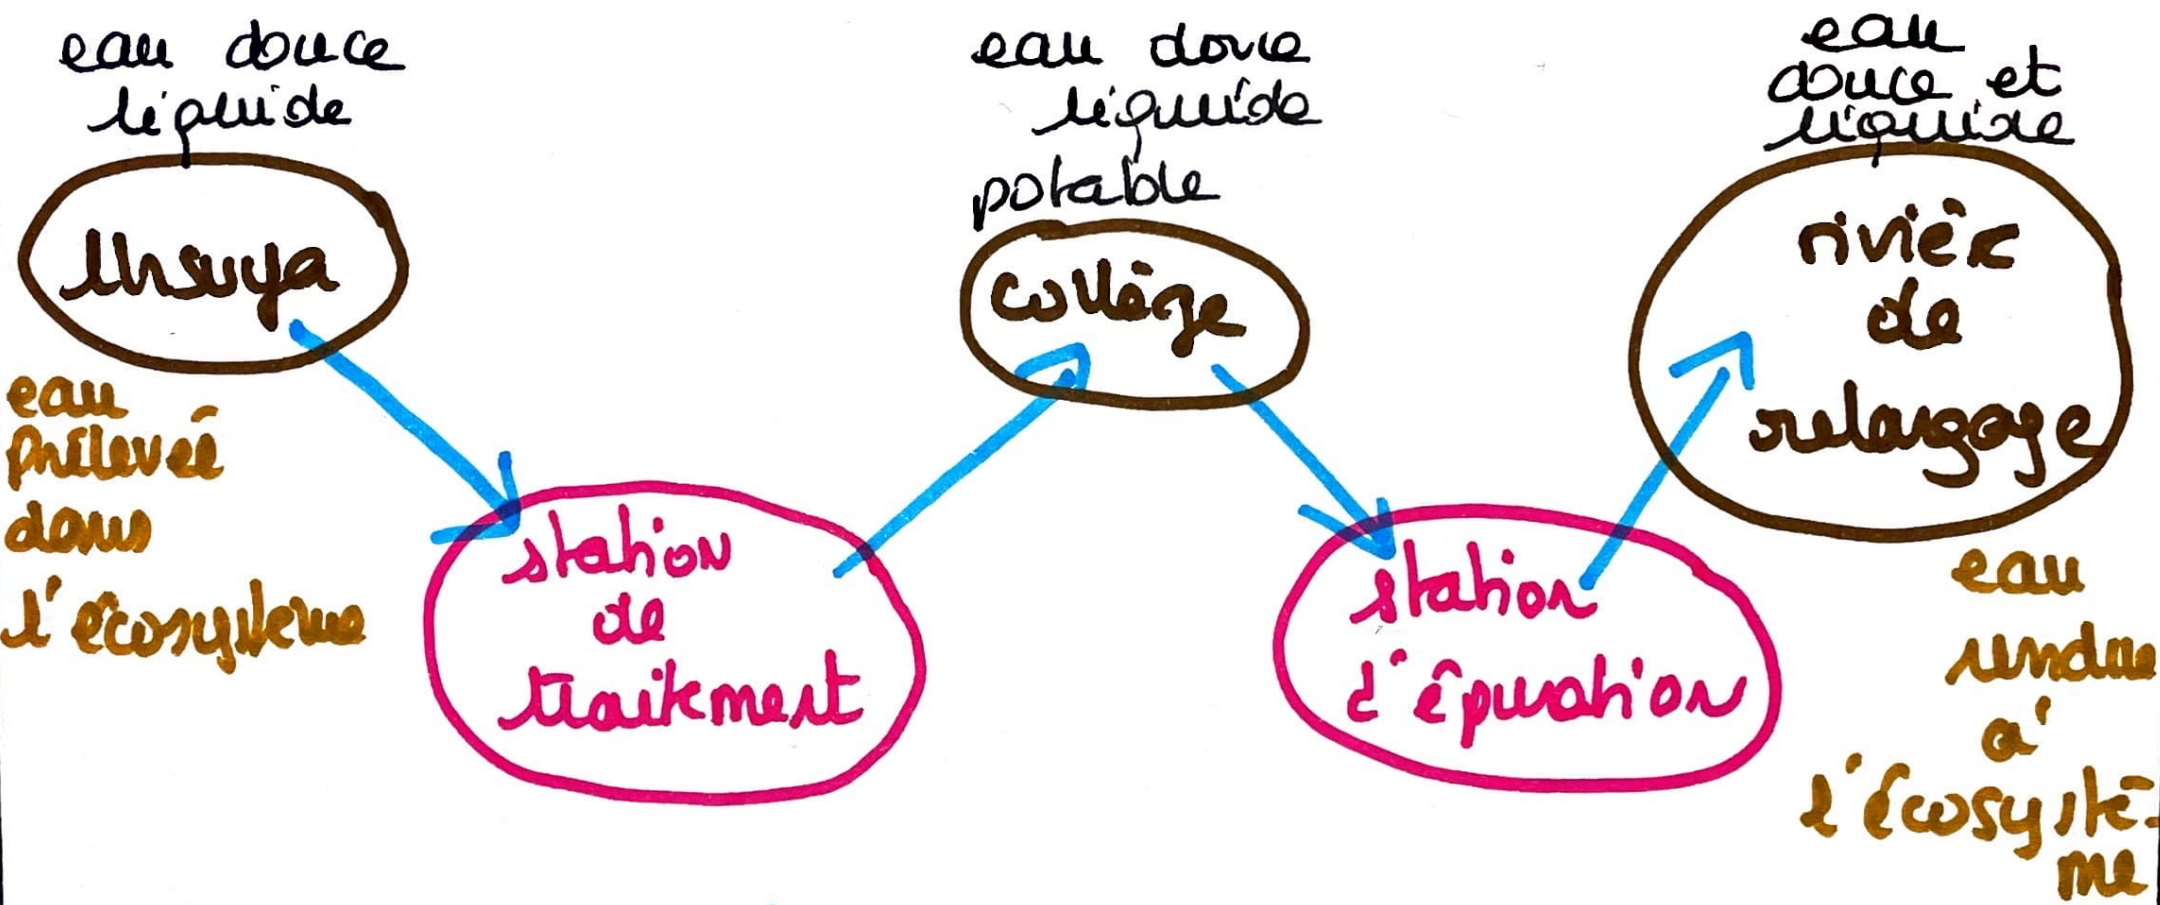 eau douce
liquide
Ursuya
eau
prélevée
dans
l'écosystème
station
de
traitement
eau douce
liquide
potable
collège
station
d'épuration
eau
douce et
liquide
rivière
de
relargage
eau
rendue
à
l'écosystè-
me